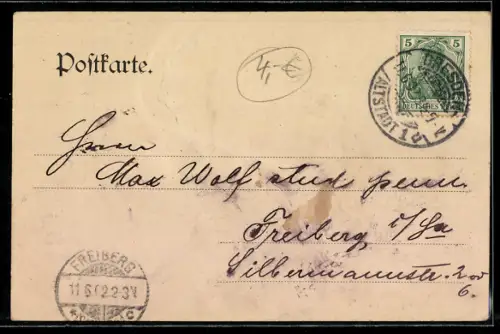 Postkarte.
4,- €
5 5
DEUTSCHES
DRESDEN
ALTSTADT 1
Herrn
Max Wolf stud
Freiberg i/Sa
Silbermannstr. 2
6.
FREIBERG
11.6.02.2-3N
c